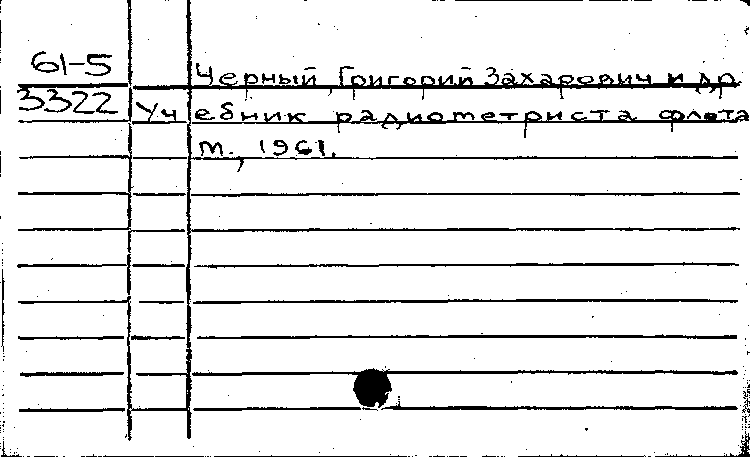 61-5 Черный, Григорий Захарович и др.
3322 Учебник радиометриста флота
М., 1961.